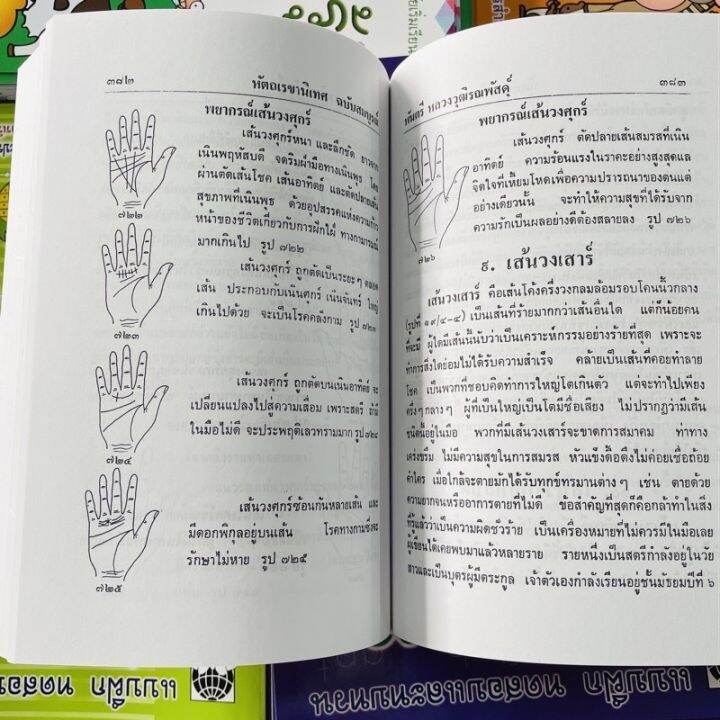 ๓๘๒ หัตถเรขานิเทศ ฉบับสมบูรณ์
พยากรณ์เส้นวงศุกร์
เส้นวงศุกร์หนา และลึกชัด
เนินพฤหัสบดี จดริมฝ่ามือทางเนินพุธ
ผ่านตัดเส้นโชค เส้นอาทิตย์ และตัดปลาย
สุขภาพที่เนินพุธ ด้วยอุปสรรคแห่งความก้าว
หน้าของชีวิตเกี่ยวกับการฝักใฝ่ ทางกามารมณ์
มากเกินไป รูป ๗๒๒
๗๒๒
เส้นวงศุกร์ ถูกตัดเป็นระยะๆ ตลอด
เส้น ประกอบกับเนินศุกร์ เนินจันทร์ ใหญ่
เกินไปด้วย จะเป็นโรคคลั่งกาม รูป ๗๒๓
๗๒๓
เส้นวงศุกร์ ถูกตัดบนเนินอาทิตย์ จะ
เปลี่ยนแปลงไปสู่ความเสื่อม เพราะสตรี ถ้ามี
ในมือไม่ดี จะประพฤติเลวทรามมาก รูป ๗๒๔
๗๒๔
เส้นวงศุกร์ซ้อนกันหลายเส้น และ
มีดอกพิกุลอยู่บนเส้น โรคทางกามซึ่งจะ
รักษาไม่หาย รูป ๗๒๕
๗๒๕
พันตรี หลวงวุฒิรณพัสดุ์ ๓๘๓
พยากรณ์เส้นวงศุกร์
เส้นวงศุกร์ ตัดปลายเส้นสมรสที่เนิน
อาทิตย์ ความร้อนแรงในราคะอย่างสูงสุดแล
จิตใจที่เหี้ยมโหดเพื่อความปรารถนาของตนแต่
อย่างเดียวนั้น จะทำให้ความสุขที่ได้รับจาก
ความรักเป็นผลอย่างดีต้องสลายลง รูป ๗๒๖
๗๒๖
๙. เส้นวงเสาร์
เส้นวงเสาร์ คือเส้นโค้งครึ่งวงกลมล้อมรอบโคนนิ้วกลาง
(รูปที่ ๑๙/๔-๔) เป็นเส้นที่ร้ายมากกว่าเส้นอื่นใด แต่ก็น้อยคน
ที่จะมี ผู้ใดมีเส้นนี้นับว่าเป็นเคราะห์กรรมอย่างร้ายที่สุด เพราะจะ
ทำการสิ่งใดย่อมไม่ได้รับความสำเร็จ คล้ายเป็นเส้นที่คอยทำลาย
โชค เป็นพวกที่ชอบคิดทำการใหญ่โตเกินตัว แต่จะทำไปเพียง
ครึ่งๆ กลางๆ ผู้ที่เป็นใหญ่เป็นโตมีชื่อเสียง ไม่ปรากฏว่ามีเส้น
ชนิดนี้อยู่ในมือ พวกที่มีเส้นวงเสาร์จะขาดการสมาคม ท่าทาง
เคร่งขรึม ไม่มีความสุขในการสมรส หัวแข็งดื้อดึงไม่ค่อยเชื่อถ้อย
คำใคร เมื่อใกล้จะตายมักได้รับทุกข์ทรมานต่างๆ เช่น ตายด้วย
ความยากจนหรืออาการตายที่ไม่ดี ข้อสำคัญที่สุดก็คือกล้าทำในสิ่ง
ที่รู้แล้วว่าเป็นความผิดชั่วร้าย เป็นเครื่องหมายที่ไม่ควรมีในมือเลย
ผู้เขียนได้เคยพบมาแล้วหลายราย รายหนึ่งเป็นสตรีกำลังอยู่ในวัย
สาวและเป็นบุตรผู้มีตระกูล เจ้าตัวเองกำลังเรียนอยู่ชั้นมัธยมปีที่ ๖
แบบฝึก ทดสอบ
แบบฝึก ทดสอบและทบทวน